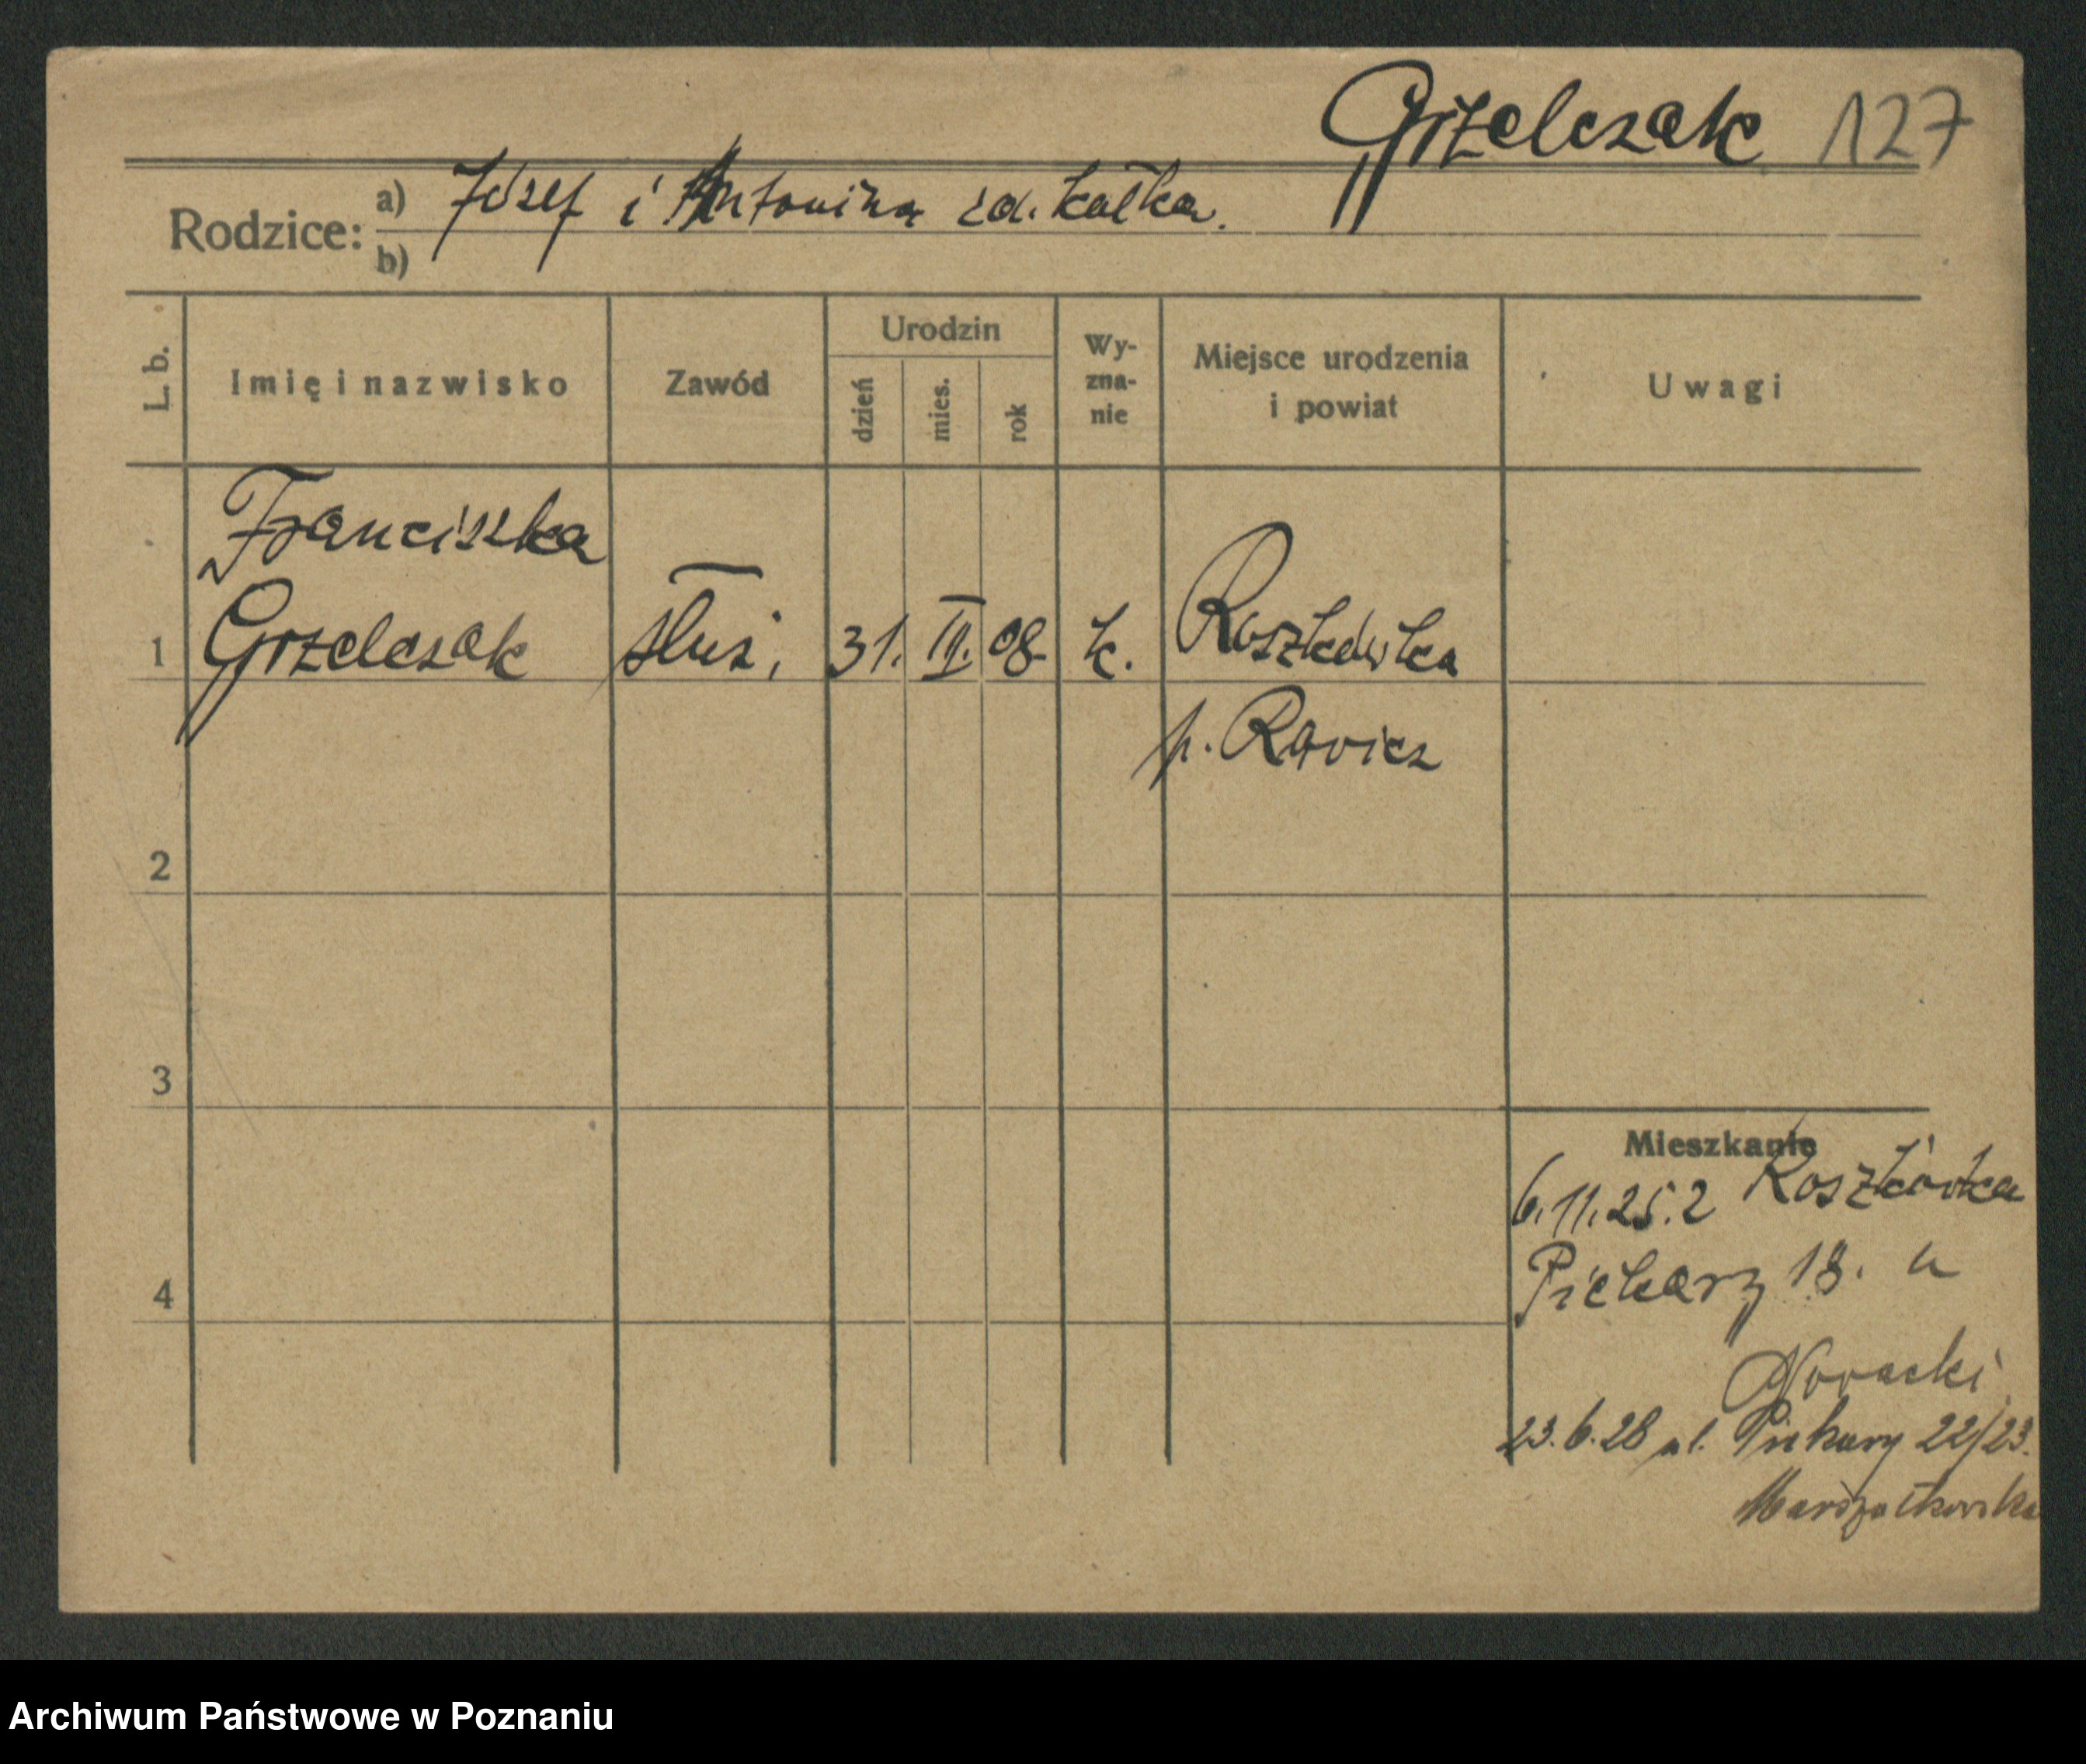 Grzelczak 127
Rodzice: a) Józef i Antonina zd. Kałka.
b)
L. b. Imię i nazwisko Zawód Urodzin dzień mies. rok Wy-zna-nie Miejsce urodzenia i powiat Uwagi
Franciszka
1 Grzelczak służ, 31. 08. k. Roszkówka
p. Rawicz
2
3
Mieszkanie
6.11.25. z Roszkówka
4 Piekary 18. u
Nowacki
23.6.28 ul. Piekary 22/23.
Marszałkowska
Archiwum Państwowe w Poznaniu